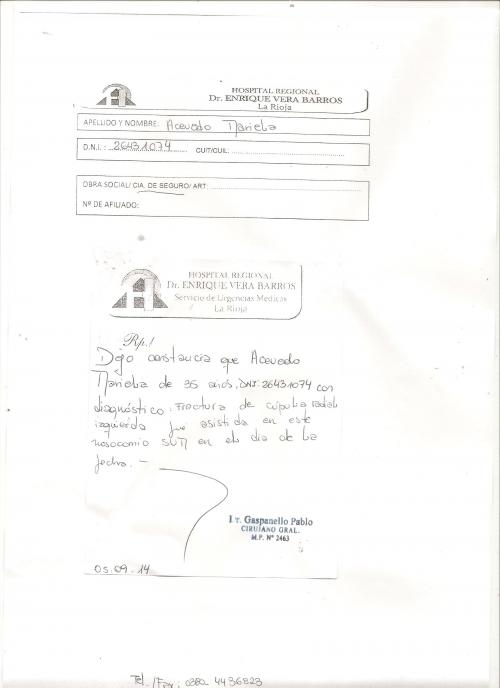 HOSPITAL REGIONAL
Dr. ENRIQUE VERA BARROS
La Rioja
APELLIDO Y NOMBRE: Acevedo Mariela
D.N.I.: 26431074 CUIT/CUIL:
OBRA SOCIAL/ CIA. DE SEGURO/ ART:
Nº DE AFILIADO:
HOSPITAL REGIONAL
Dr. ENRIQUE VERA BARROS
Servicio de Urgencias Medicas
La Rioja
Rp./
Dejo constancia que Acevedo
Mariela de 35 años, DNI: 26431074 con
diagnóstico: Fractura de cúpula radial
izquierda fue asistida en este
nosocomio en el día de la
fecha. -
Dr. Gaspanello Pablo
CIRUJANO GRAL.
M.P. Nº 2463
05.09.14
Tel./Fax: 0380 4436823